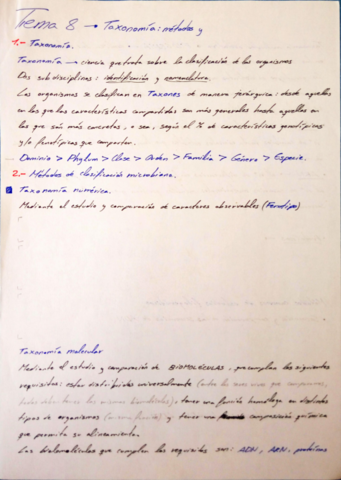 Tema 8 → Taxonomía: métodos y
1.- Taxonomía.
Taxonomía → ciencia que trata sobre la clasificación de los organismos
Dos subdisciplinas: identificación y nomenclatura.
Los organismos se clasifican en Taxones de manera jerárquica: desde aquellos
en los que las características compartidas son más generales hasta aquellos en
los que son más concretas, o sea, según el % de características genotípicas
y/o fenotípicas que comparten.
Dominio > Phylum > Clase > Orden > Familia > Género > Especie.
2.- Métodos de clasificación microbiana.
Taxonomía numérica.
Mediante el estudio y comparación de caracteres observables (Fenotipo)
Taxonomía molecular
Mediante el estudio y comparación de BIOMOLÉCULAS, que cumplan los siguientes
requisitos: estar distribuidas universalmente (entre los seres vivos que comparemos,
todos deben tener las mismas biomoléculas), tener una función homóloga en distintos
tipos de organismos (misma función) y tener una composición química
que permita su alineamiento.
Las biomoléculas que cumplen los requisitos son: ADN, ARN, proteínas